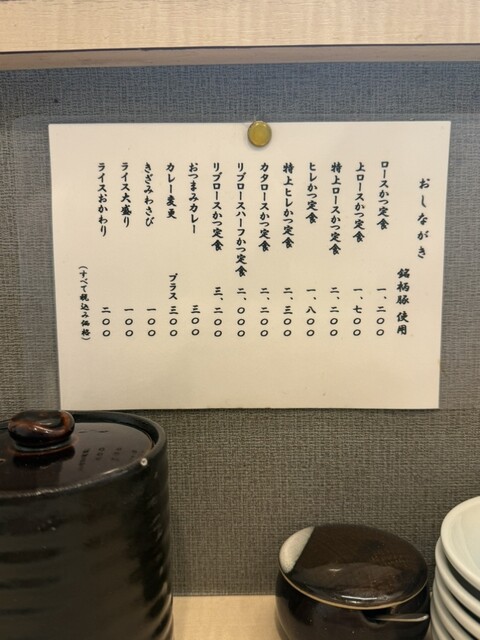 おしながき
銘柄豚使用
ロースかつ定食 一、二〇〇
上ロースかつ定食 一、七〇〇
特上ロースかつ定食 二、二〇〇
ヒレかつ定食 一、八〇〇
特上ヒレかつ定食 二、三〇〇
カタロースかつ定食 二、二〇〇
リブロースハーフかつ定食 二、〇〇〇
リブロースかつ定食 三、二〇〇
おつまみカレー 三〇〇
カレー変更 プラス 三〇〇
きざみわさび 一〇〇
ライス大盛り 一〇〇
ライスおかわり 二〇〇
(すべて税込み価格)